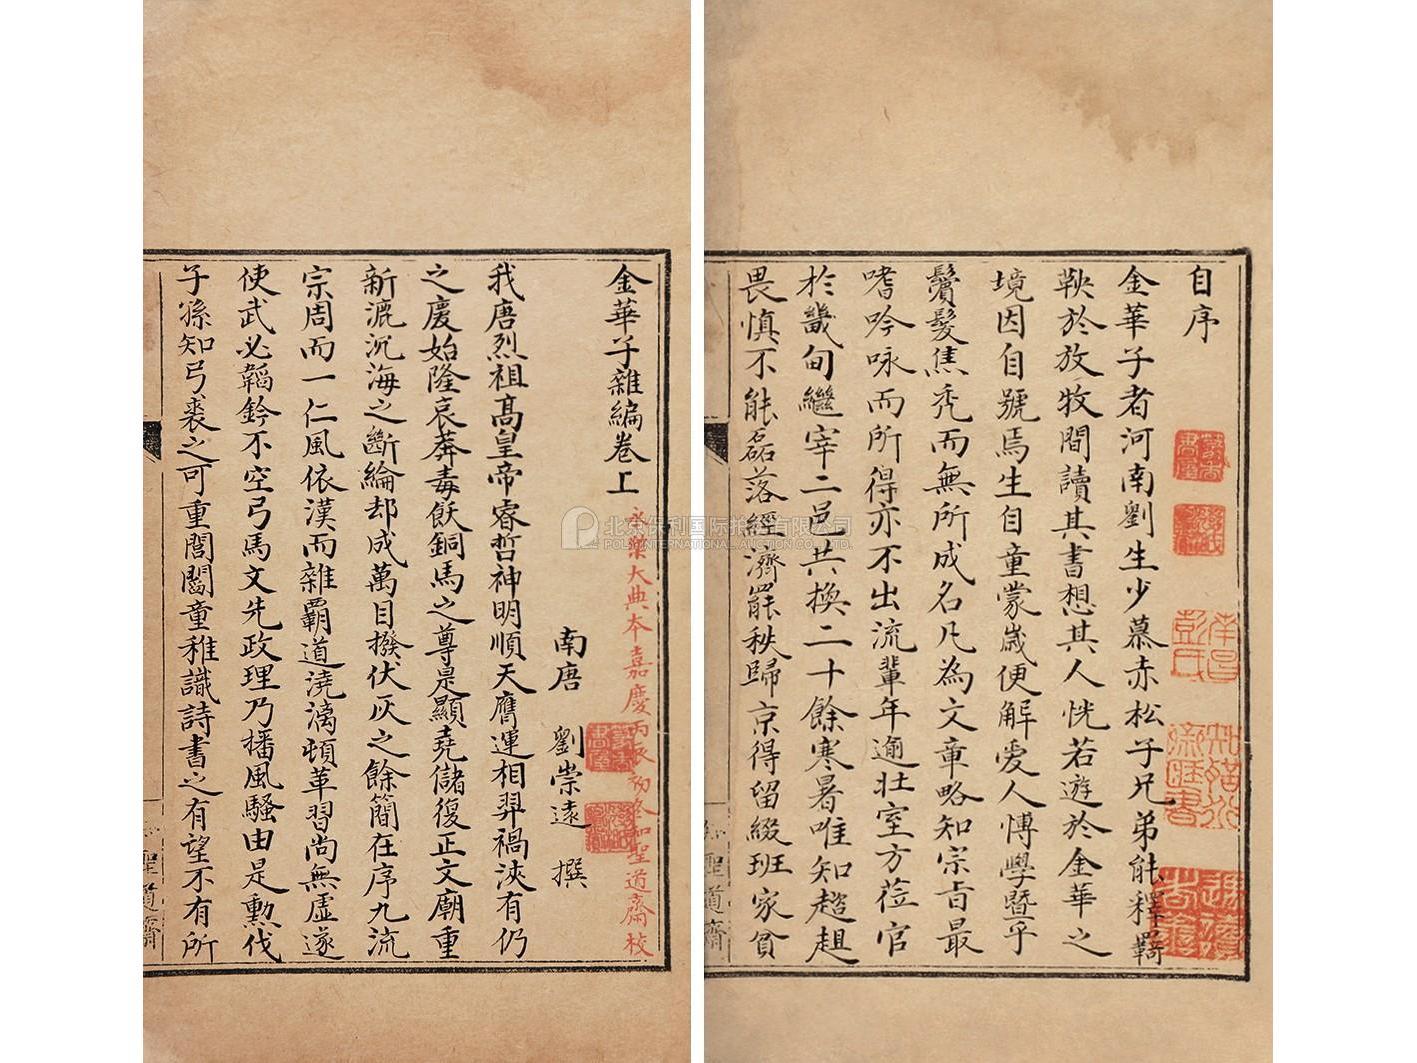 自序
金華子者河南劉生少慕赤松子兄弟能釋羇
鞅於放牧間讀其書想其人恍若遊於金華之
境因自號焉生自童蒙歲便解愛人博學暨乎
鬢髮焦禿而無所成名凡為文章略知宗旨最
嗜吟咏而所得亦不出流輩年逾壯室方莅官
於畿甸繼宰二邑共換二十餘寒暑唯知趦趄
畏慎不能磊落經濟罷秩歸京得留綴班家貧
聖道齋
南昌
彭氏
知聖道
齋藏書
金華子雜編卷上
永樂大典本嘉慶丙辰初冬知聖道齋校
南唐 劉崇遠 撰
我唐烈祖高皇帝睿哲神明順天膺運相羿禍浹有仍
之慶始隆哀莽毒飫銅馬之尊是顯堯儲復正文廟重
新漉沉海之斷綸却成萬目撥伏灰之餘簡在序九流
宗周而一仁風依漢而雜霸道澆漓頓革習尚無虛遂
使武必韜鈐不空弓馬文先政理乃播風騷由是勲伐
子孫知弓裘之可重閭閻童稚識詩書之有望不有所
聖道齋
北京保利国际拍卖有限公司
POLY INTERNATIONAL AUCTION CO., LTD.